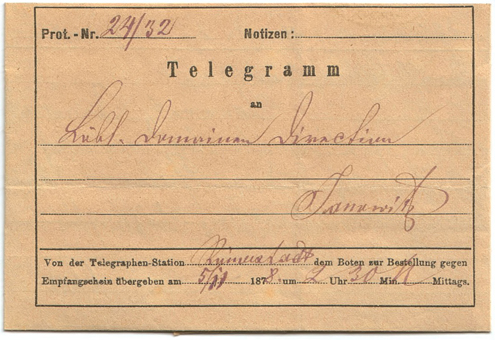 Prot.-Nr. 24/32 Notizen:
Telegramm
an
Löbl. Domainen Direction
Janowitz
Von der Telegraphen-Station Römerstadt dem Boten zur Bestellung gegen
Empfangschein übergeben am 5/11 1878 um 2 Uhr 30 Min. N Mittags.